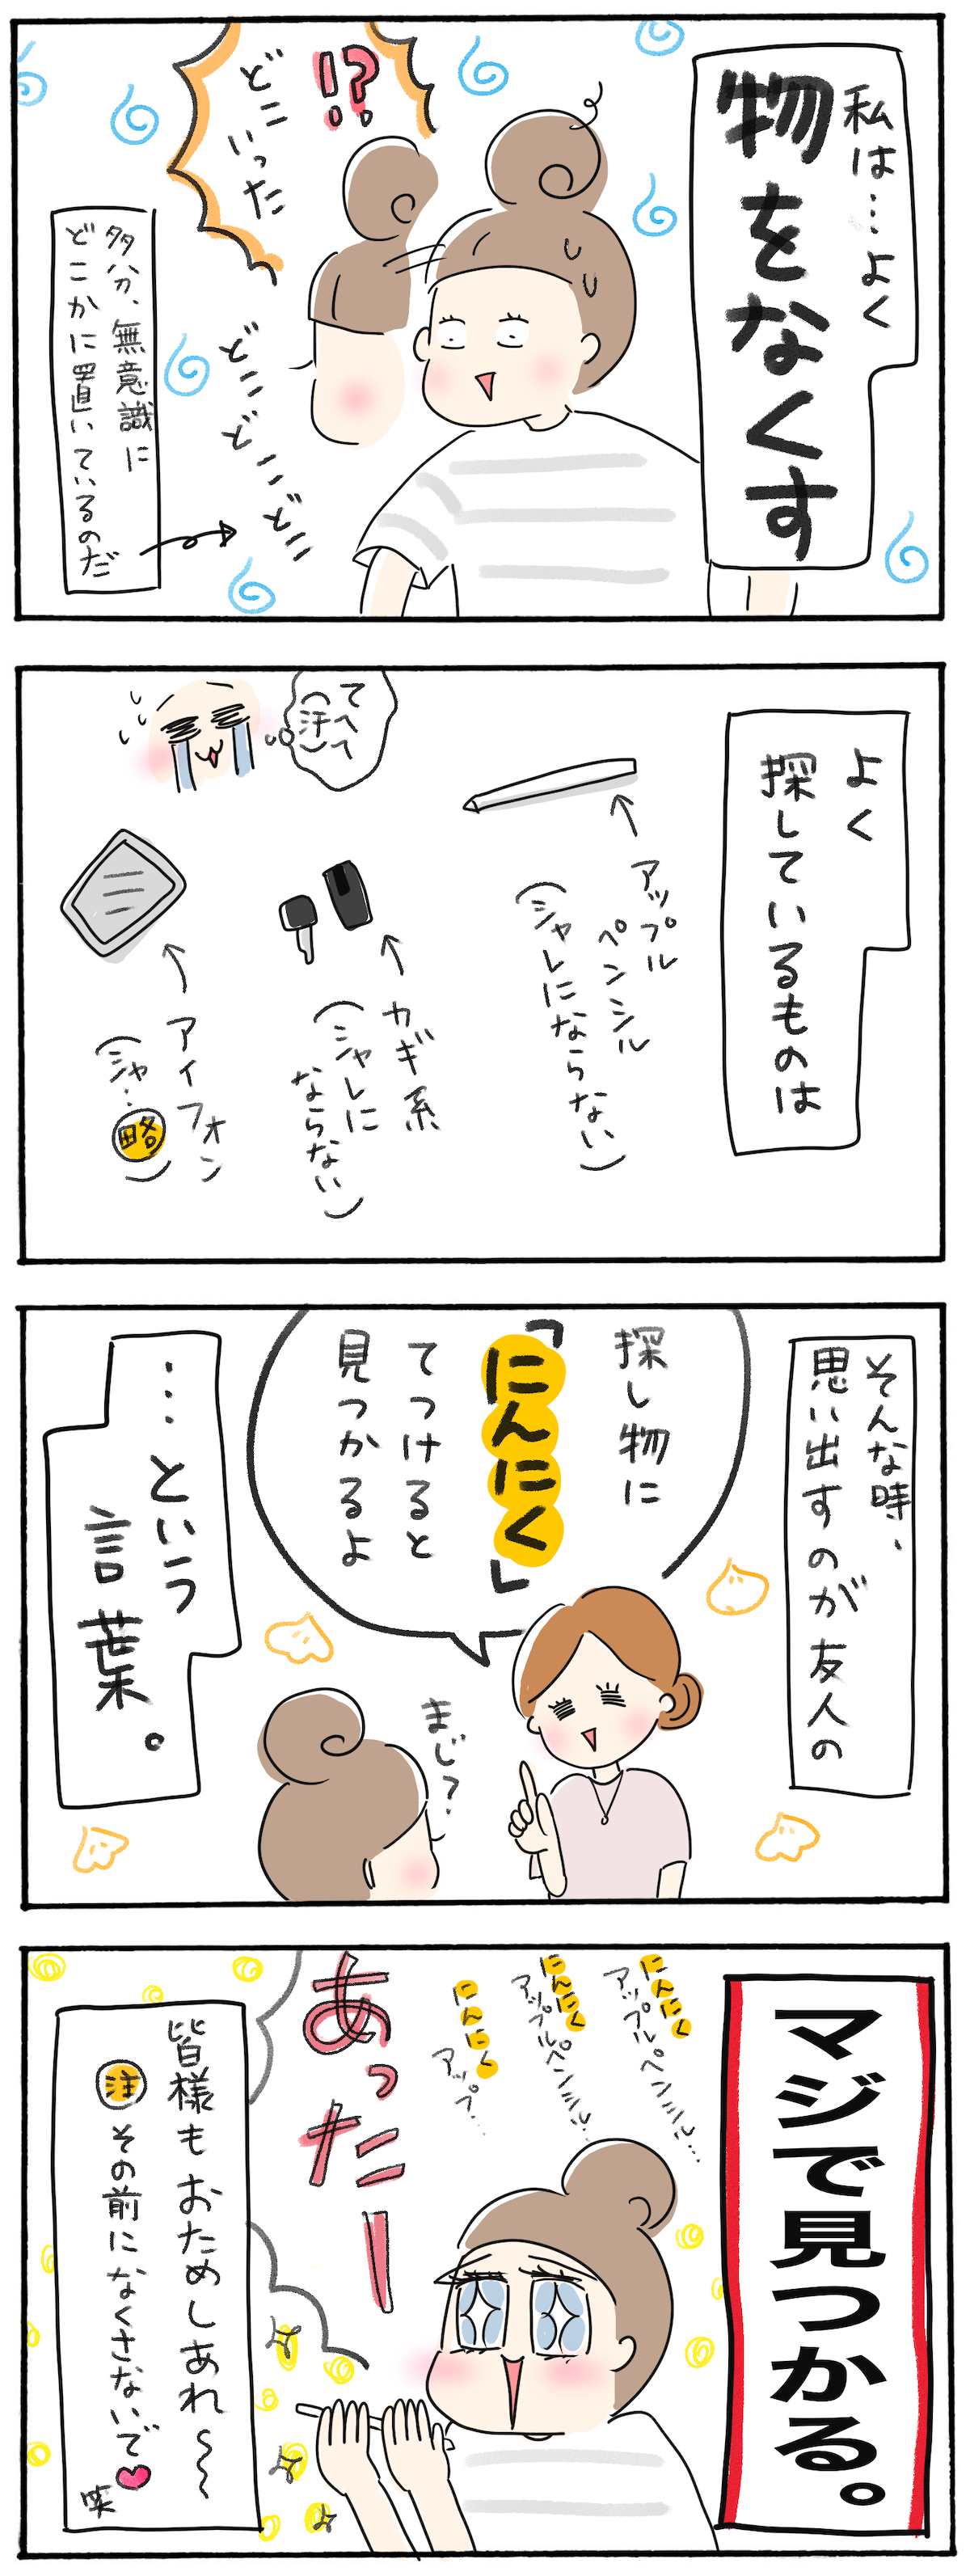 私は…よく
物をなくす
!?
どこいった
どこどこどこ
多分、無意識に
どこかに置いているのだ
よく
探しているものは
アップル
ペンシル
(シャレにならない)
カギ系
(シャレに
ならない)
てへへ
(汗)
アイフォン
(シャ…略)
そんな時、
思い出すのが友人の
探し物に
「にんにく」
てつけると
見つかるよ
まじ?
…という
言葉。
マジで見つかる。
にんにく
アップルペンシル…
にんにく
アップルペンシル…
にんにく
アップ…
あったー
皆様もおためしあれ〜〜
注その前になくさないで♥
笑